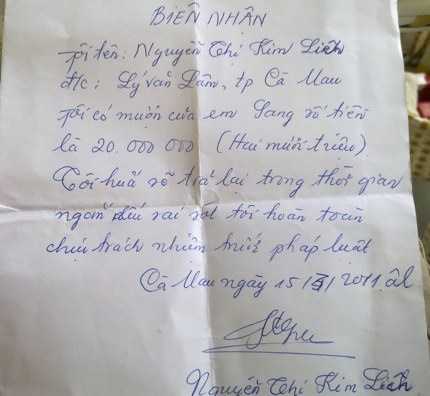 BIÊN NHẬN
Tôi tên: Nguyễn Thị Kim Liên
đ/c: Lý Văn Lâm, tp Cà Mau
Tôi có mượn của em Sang số tiền
là 20.000 000 (Hai mươi triệu)
Tôi hứa sẽ trả lại trong thời gian
ngắn nếu sai sót tôi hoàn toàn
chịu trách nhiệm trước pháp luật
Cà Mau ngày 15/3/2011 âl
Nguyễn Thị Kim Liên